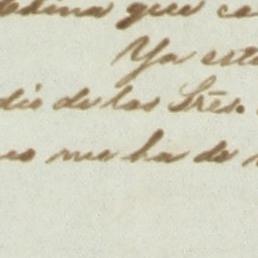 edina que ca
Ya est
dio de las Sres.
no me ha de